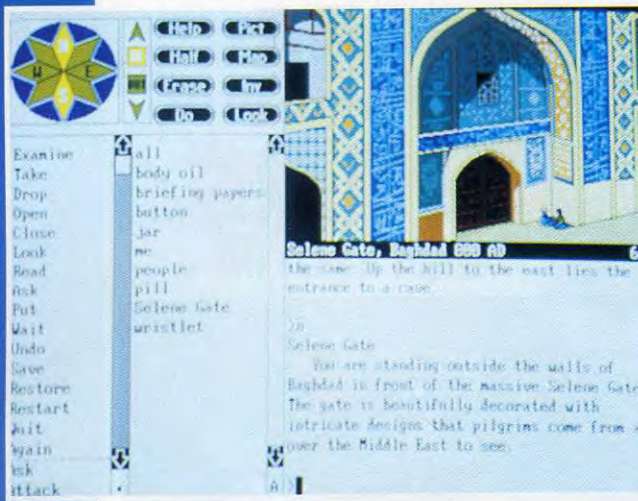 N
W E
S
Help Pict
Half Map
Erase Inv
Do Look
Examine
Take
Drop
Open
Close
Look
Read
Ask
Put
Wait
Undo
Save
Restore
Restart
Quit
Again
Ask
Attack
all
body oil
briefing papers
button
jar
me
people
pill
Selene Gate
wristlet
Selene Gate, Baghdad 800 AD 6
the same. Up the hill to the east lies the
entrance to a cave.
>n
Selene Gate
You are standing outside the walls of
Baghdad in front of the massive Selene Gate
The gate is beautifully decorated with
intricate designs that pilgrims come from
over the Middle East to see.
A >